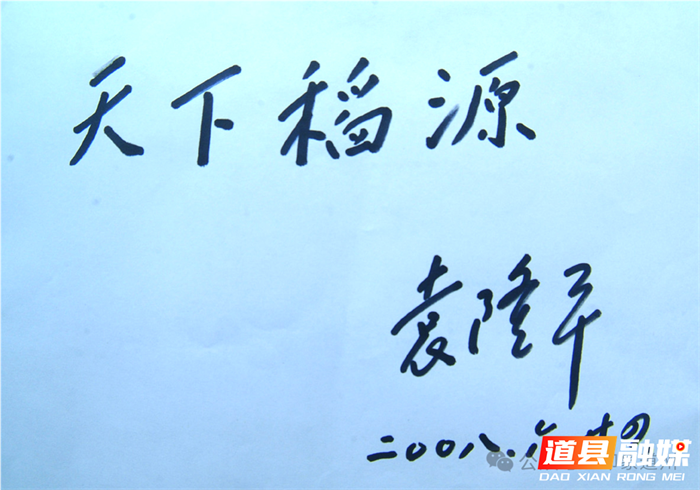 天下稻源
袁隆平
二00八.六.
道县融媒
DAO XIAN RONG MEI